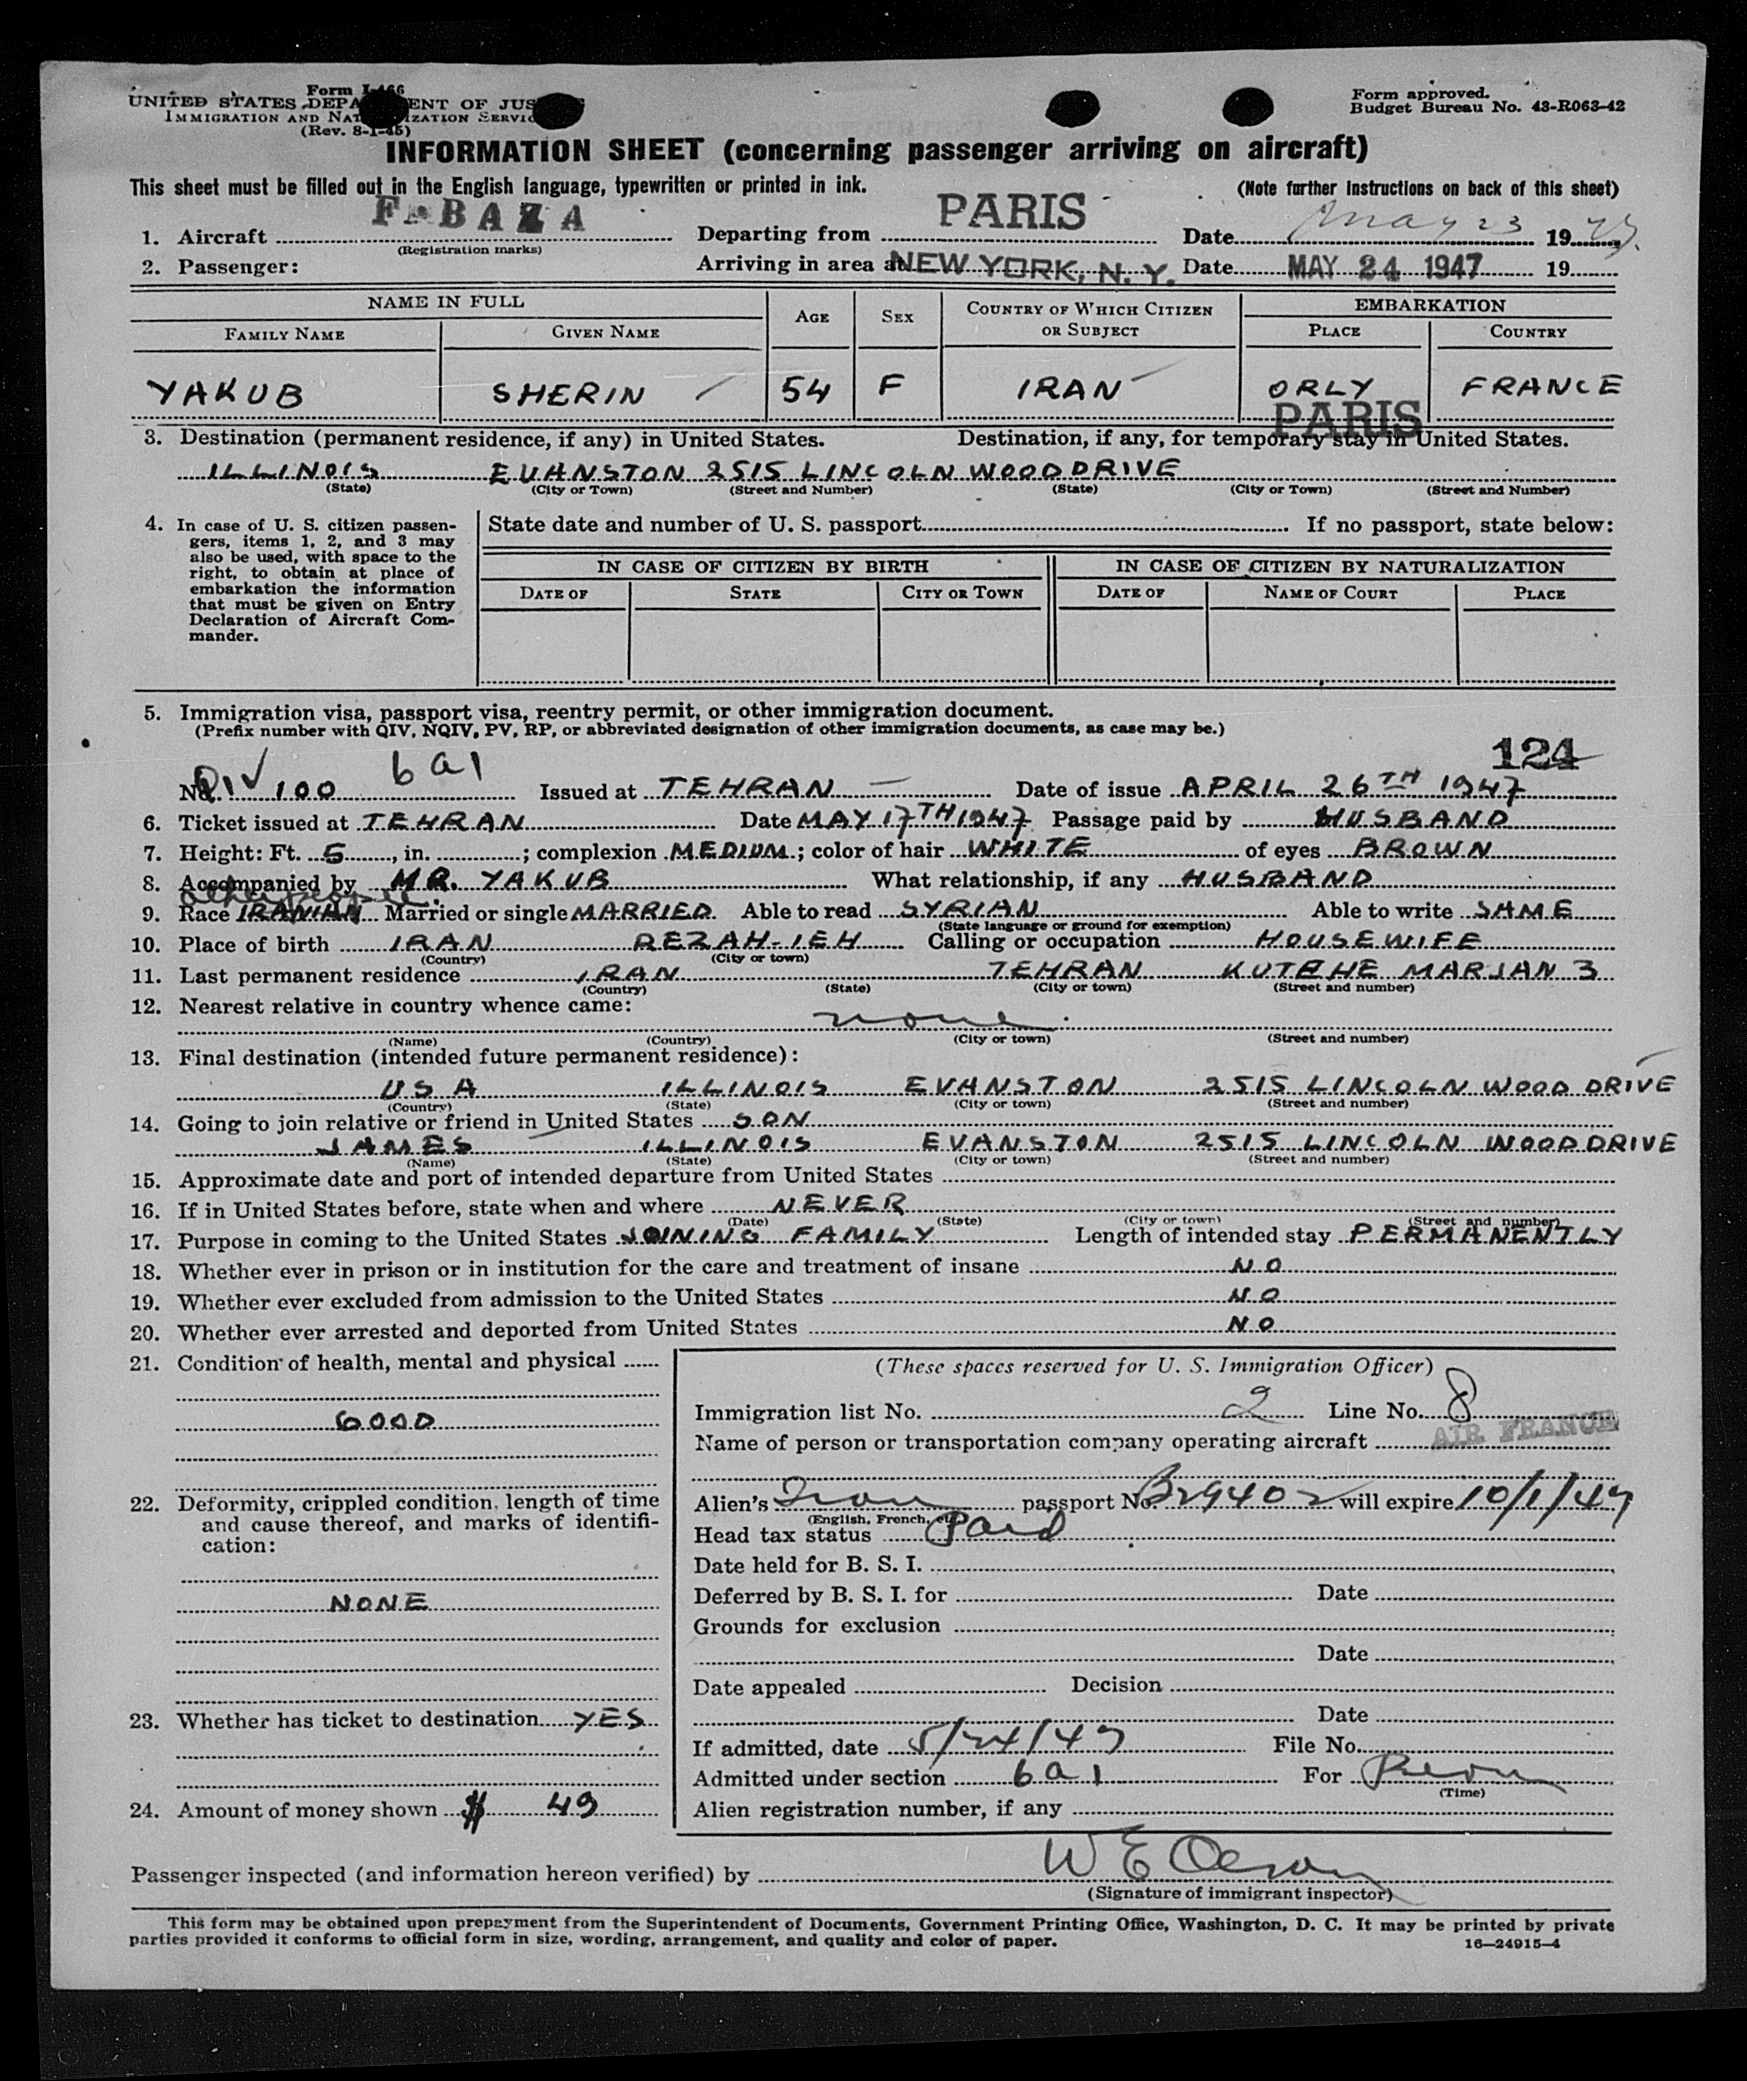 Form I-466
UNITED STATES DEPARTMENT OF JUSTICE
IMMIGRATION AND NATURALIZATION SERVICE
(Rev. 8-1-45)
Form approved.
Budget Bureau No. 43-R063-42
INFORMATION SHEET (concerning passenger arriving on aircraft)
This sheet must be filled out in the English language, typewritten or printed in ink. (Note further instructions on back of this sheet)
1. Aircraft F-BAZA (Registration marks) Departing from PARIS Date May 23 1947
2. Passenger: Arriving in area at NEW YORK, N. Y. Date MAY 24 1947 19
NAME IN FULL AGE SEX COUNTRY OF WHICH CITIZEN OR SUBJECT EMBARKATION
FAMILY NAME GIVEN NAME PLACE COUNTRY
YAKUB SHERIN 54 F IRAN ORLY FRANCE
PARIS
3. Destination (permanent residence, if any) in United States. Destination, if any, for temporary stay in United States.
ILLINOIS EVANSTON 2515 LINCOLN WOOD DRIVE
(State) (City or Town) (Street and Number) (State) (City or Town) (Street and Number)
4. In case of U. S. citizen passen-
gers, items 1, 2, and 3 may
also be used, with space to the
right, to obtain at place of
embarkation the information
that must be given on Entry
Declaration of Aircraft Com-
mander.
State date and number of U. S. passport If no passport, state below:
IN CASE OF CITIZEN BY BIRTH IN CASE OF CITIZEN BY NATURALIZATION
DATE OF STATE CITY OR TOWN DATE OF NAME OF COURT PLACE
5. Immigration visa, passport visa, reentry permit, or other immigration document.
(Prefix number with QIV, NQIV, PV, RP, or abbreviated designation of other immigration documents, as case may be.)
124
No. QIV 100 6a1 Issued at TEHRAN Date of issue APRIL 26TH 1947
6. Ticket issued at TEHRAN Date MAY 17TH 1947 Passage paid by HUSBAND
7. Height: Ft. 5, in. ; complexion MEDIUM; color of hair WHITE of eyes BROWN
8. Accompanied by MR. YAKUB What relationship, if any HUSBAND
9. Race IRANIAN Married or single MARRIED. Able to read SYRIAN Able to write SAME
(State language or ground for exemption)
10. Place of birth IRAN REZAH-IEH Calling or occupation HOUSEWIFE
(Country) (City or town)
11. Last permanent residence IRAN TEHRAN KUTEHE MARJAN 3
(Country) (State) (City or town) (Street and number)
12. Nearest relative in country whence came:
none
(Name) (Country) (City or town) (Street and number)
13. Final destination (intended future permanent residence):
USA ILLINOIS EVANSTON 2515 LINCOLN WOOD DRIVE
(Country) (State) (City or town) (Street and number)
14. Going to join relative or friend in United States SON
JAMES ILLINOIS EVANSTON 2515 LINCOLN WOOD DRIVE
(Name) (State) (City or town) (Street and number)
15. Approximate date and port of intended departure from United States
16. If in United States before, state when and where NEVER
(Date) (State) (City or town) (Street and number)
17. Purpose in coming to the United States JOINING FAMILY Length of intended stay PERMANENTLY
18. Whether ever in prison or in institution for the care and treatment of insane NO
19. Whether ever excluded from admission to the United States NO
20. Whether ever arrested and deported from United States NO
21. Condition of health, mental and physical
GOOD
22. Deformity, crippled condition, length of time
and cause thereof, and marks of identifi-
cation:
NONE
23. Whether has ticket to destination YES
24. Amount of money shown $ 49
(These spaces reserved for U. S. Immigration Officer)
Immigration list No. 2 Line No. 8
Name of person or transportation company operating aircraft AIR FRANCE
Alien's Iran passport No. B29402 will expire 10/1/47
(English, French, etc.)
Head tax status Paid
Date held for B. S. I.
Deferred by B. S. I. for Date
Grounds for exclusion
Date
Date appealed Decision
Date
If admitted, date 5/24/47 File No.
Admitted under section 6a1 For Perm
(Time)
Alien registration number, if any
Passenger inspected (and information hereon verified) by W E Olson
(Signature of immigrant inspector)
This form may be obtained upon prepayment from the Superintendent of Documents, Government Printing Office, Washington, D. C. It may be printed by private
parties provided it conforms to official form in size, wording, arrangement, and quality and color of paper.
16—24915-4